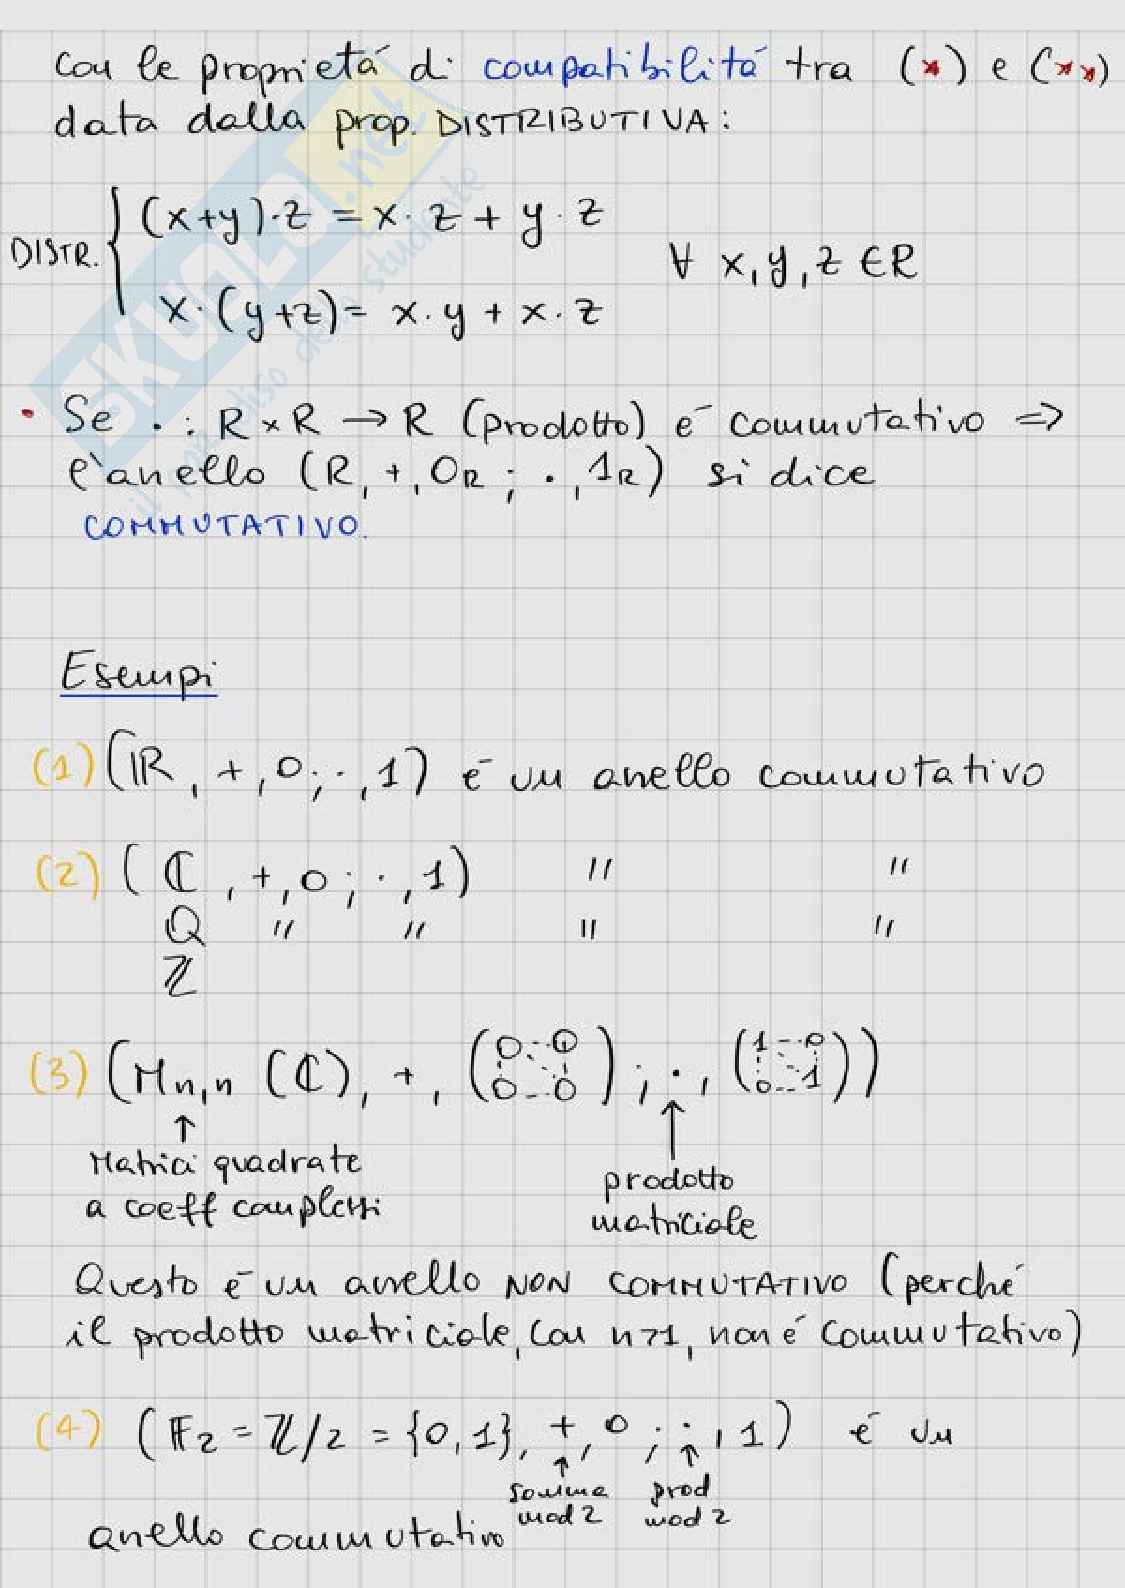 con le proprietá di compatibilitá tra (*) e (**)
data dalla prop. DISTRIBUTIVA:
DISTR. { (x+y)·z = x·z + y·z
x·(y+z) = x·y + x·z
∀ x,y,z ∈ R
• Se · : R×R → R (prodotto) é commutativo ⇒
l'anello (R, +, 0R ; ·, 1R) si dice
COMMUTATIVO.
Esempi
(1) (ℝ, +, 0; ·, 1) é un anello commutativo
(2) (ℂ, +, 0; ·, 1) " "
ℚ " " " "
ℤ
(3) (Mn,n (ℂ), +, (0...0 0...0) ; ·, (1...0 0...1))
↑ ↑
Matrici quadrate
a coeff complessi
prodotto
matriciale
Questo é un anello NON COMMUTATIVO (perché
il prodotto matriciale, con n>1, non é commutativo)
(4) (𝔽2 = ℤ/2 = {0,1}, +, 0; ·, 1) é un
↑ ↑
somma prod
mod 2 mod 2
anello commutativo
SKUOLA.net
il paradiso dello studente